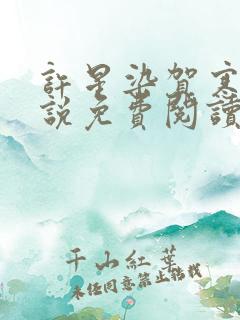 許星染賀寒
說免費閱讀
千山紅葉
未經同意禁止轉載